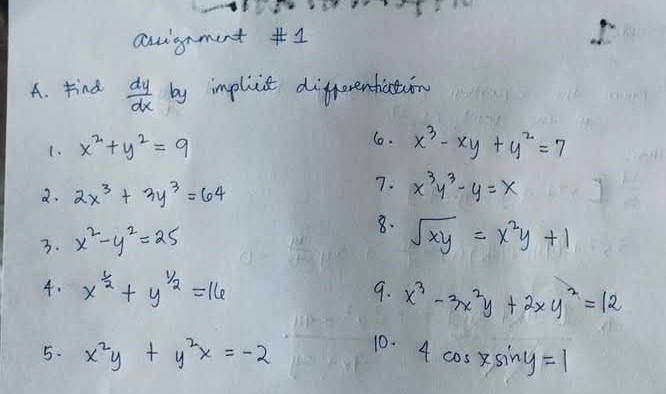 Assignment #1
A. Find dy/dx by implicit differentiation
1. x² + y² = 9
2. 2x³ + 3y³ = 64
3. x² - y² = 25
4. x^½ + y^½ = 16
5. x²y + y²x = -2
6. x³ - xy + y² = 7
7. x³y³ - y = x
8. √xy = x²y + 1
9. x³ - 3x²y + 2xy² = 12
10. 4 cos x sin y = 1